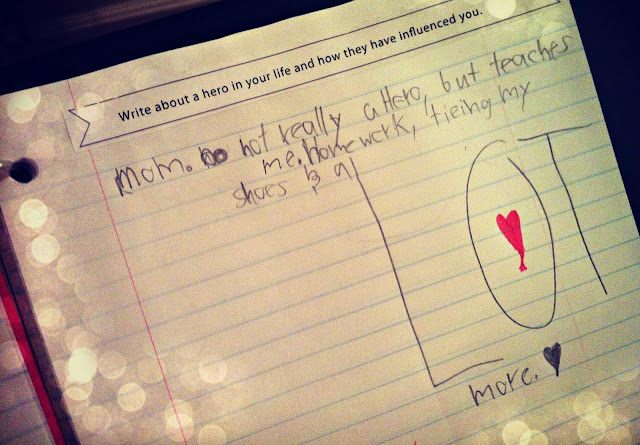 Write about a hero in your life and how they have influenced you.
mom. not really a Hero, but teaches
me. homewerk, tieing my
shoes & a
LOT
more.